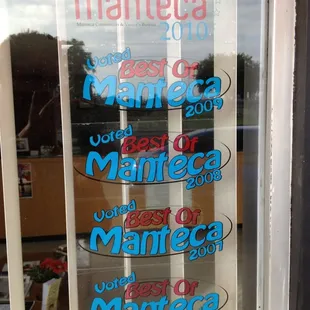 manteca
2010
Voted
Best Of
Manteca
2009
Voted
Best Of
Manteca
2008
Voted
Best Of
Manteca
2007
Voted
Best Of
Manteca